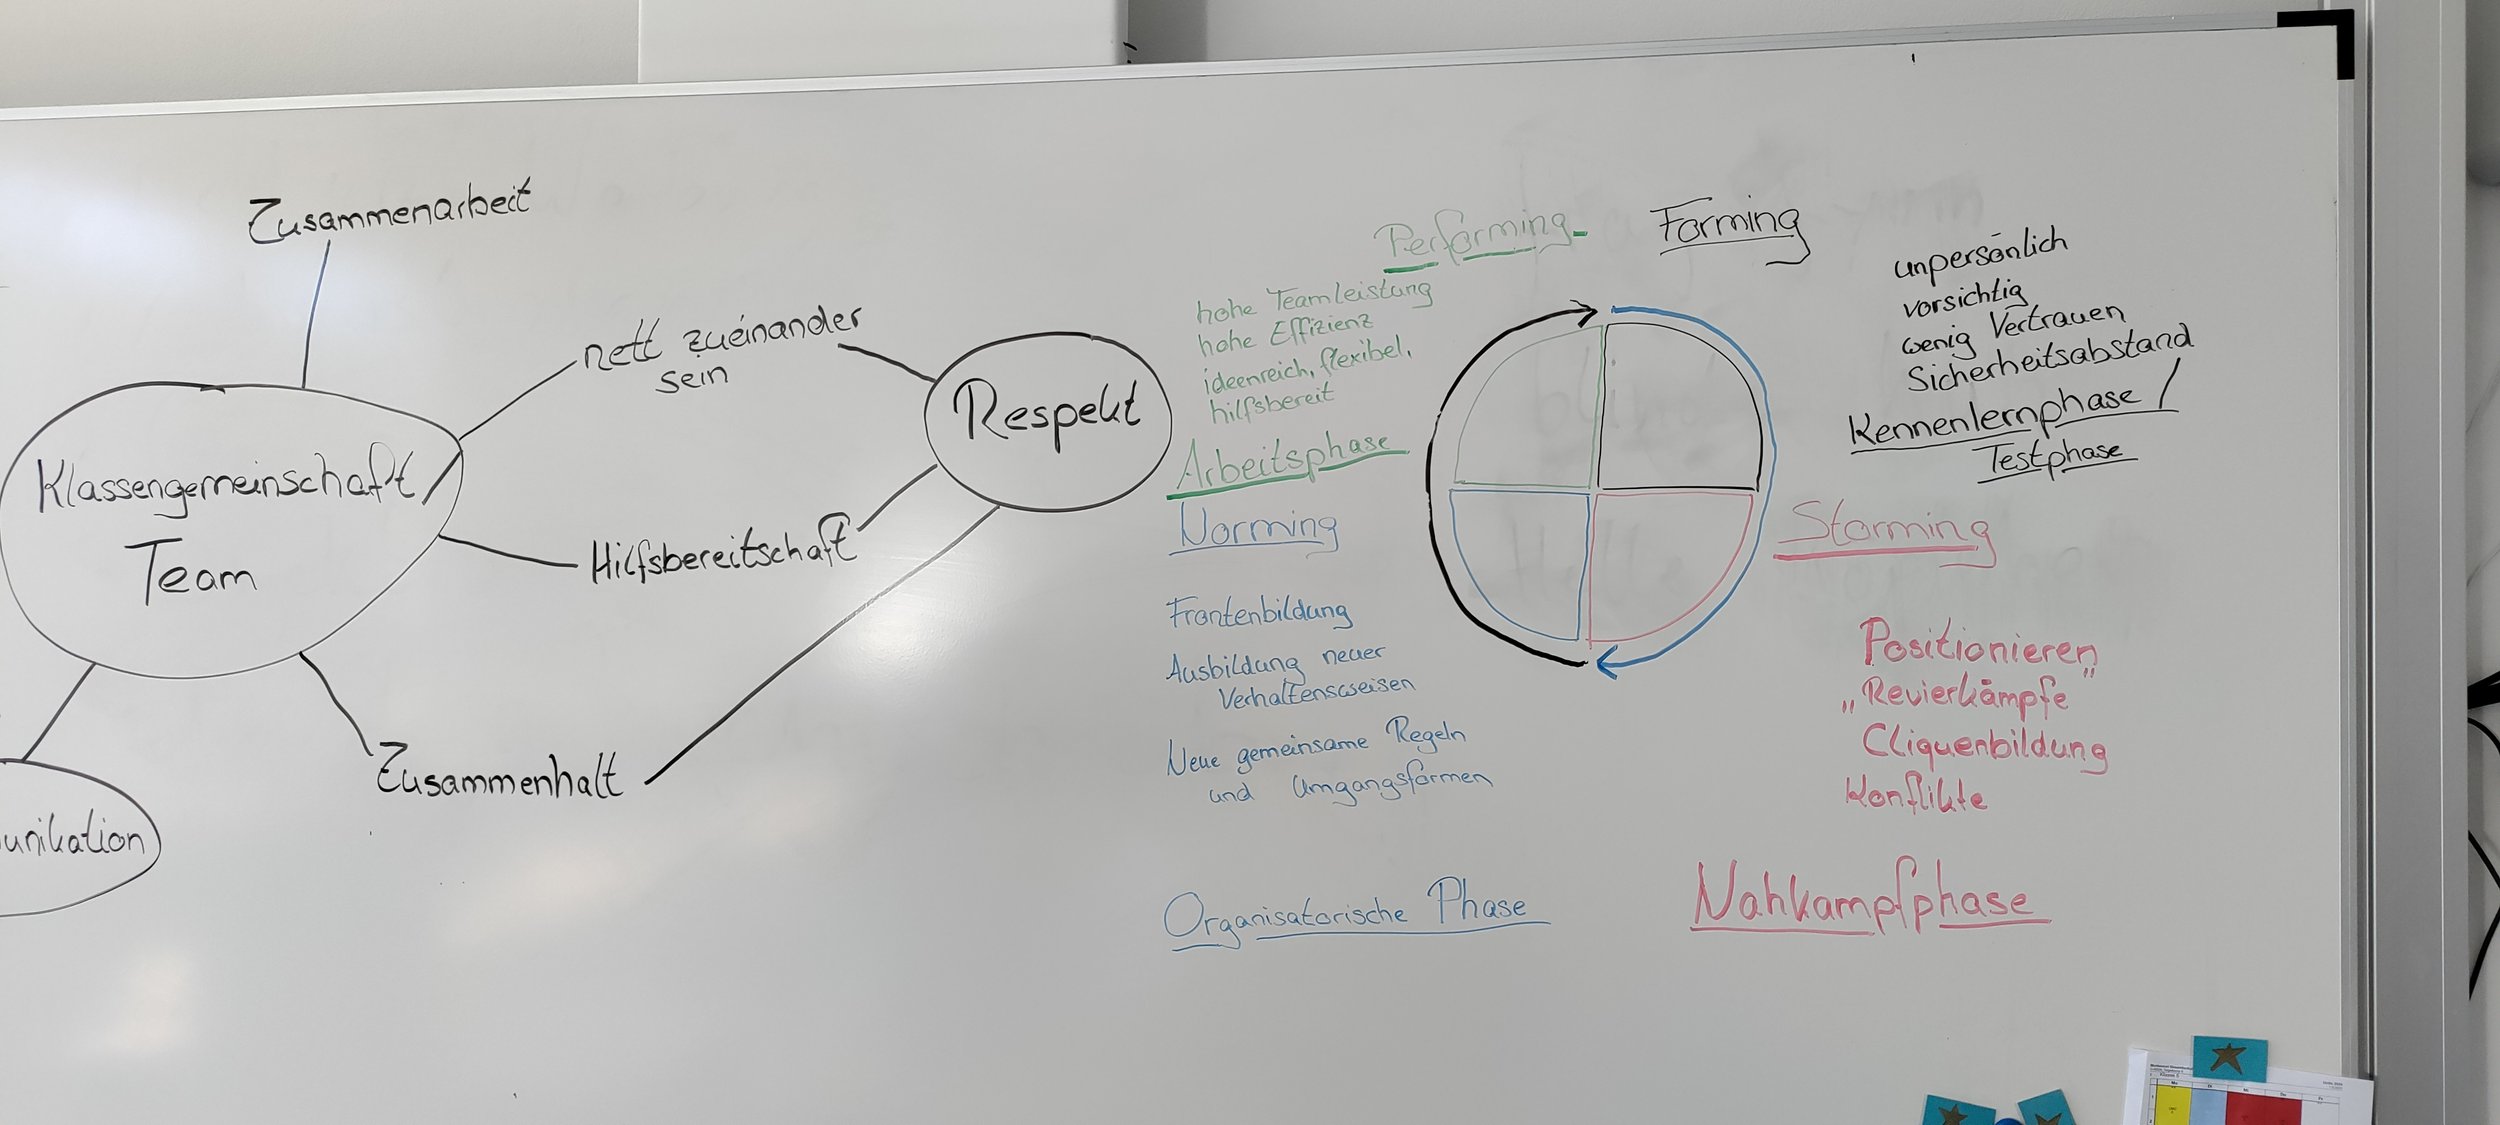 Zusammenarbeit
nett zueinander
sein
Respekt
Klassengemeinschaft /
Team
Hilfsbereitschaft
Zusammenhalt
unikation
Performing
hohe Teamleistung
hohe Effizienz
ideenreich, flexibel,
hilfsbereit
Arbeitsphase
Forming
unpersönlich
vorsichtig
wenig Vertrauen
Sicherheitsabstand
Kennenlernphase /
Testphase
Norming
Frontenbildung
Ausbildung neuer
Verhaltensweisen
Neue gemeinsame Regeln
und Umgangsformen
Organisatorische Phase
Storming
Positionieren
„Revierkämpfe”
Cliquenbildung
Konflikte
Nahkampfphase